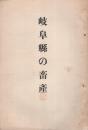 岐阜縣の畜產